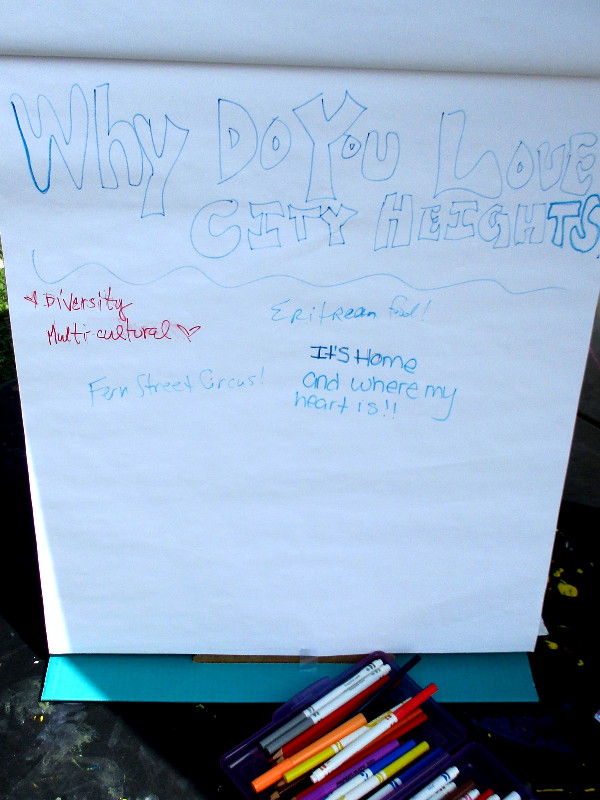 Why Do You Love
City Heights
Diversity
Multi-cultural
Eritrean food!
Fern Street Circus!
It's Home
and where my
heart is!!